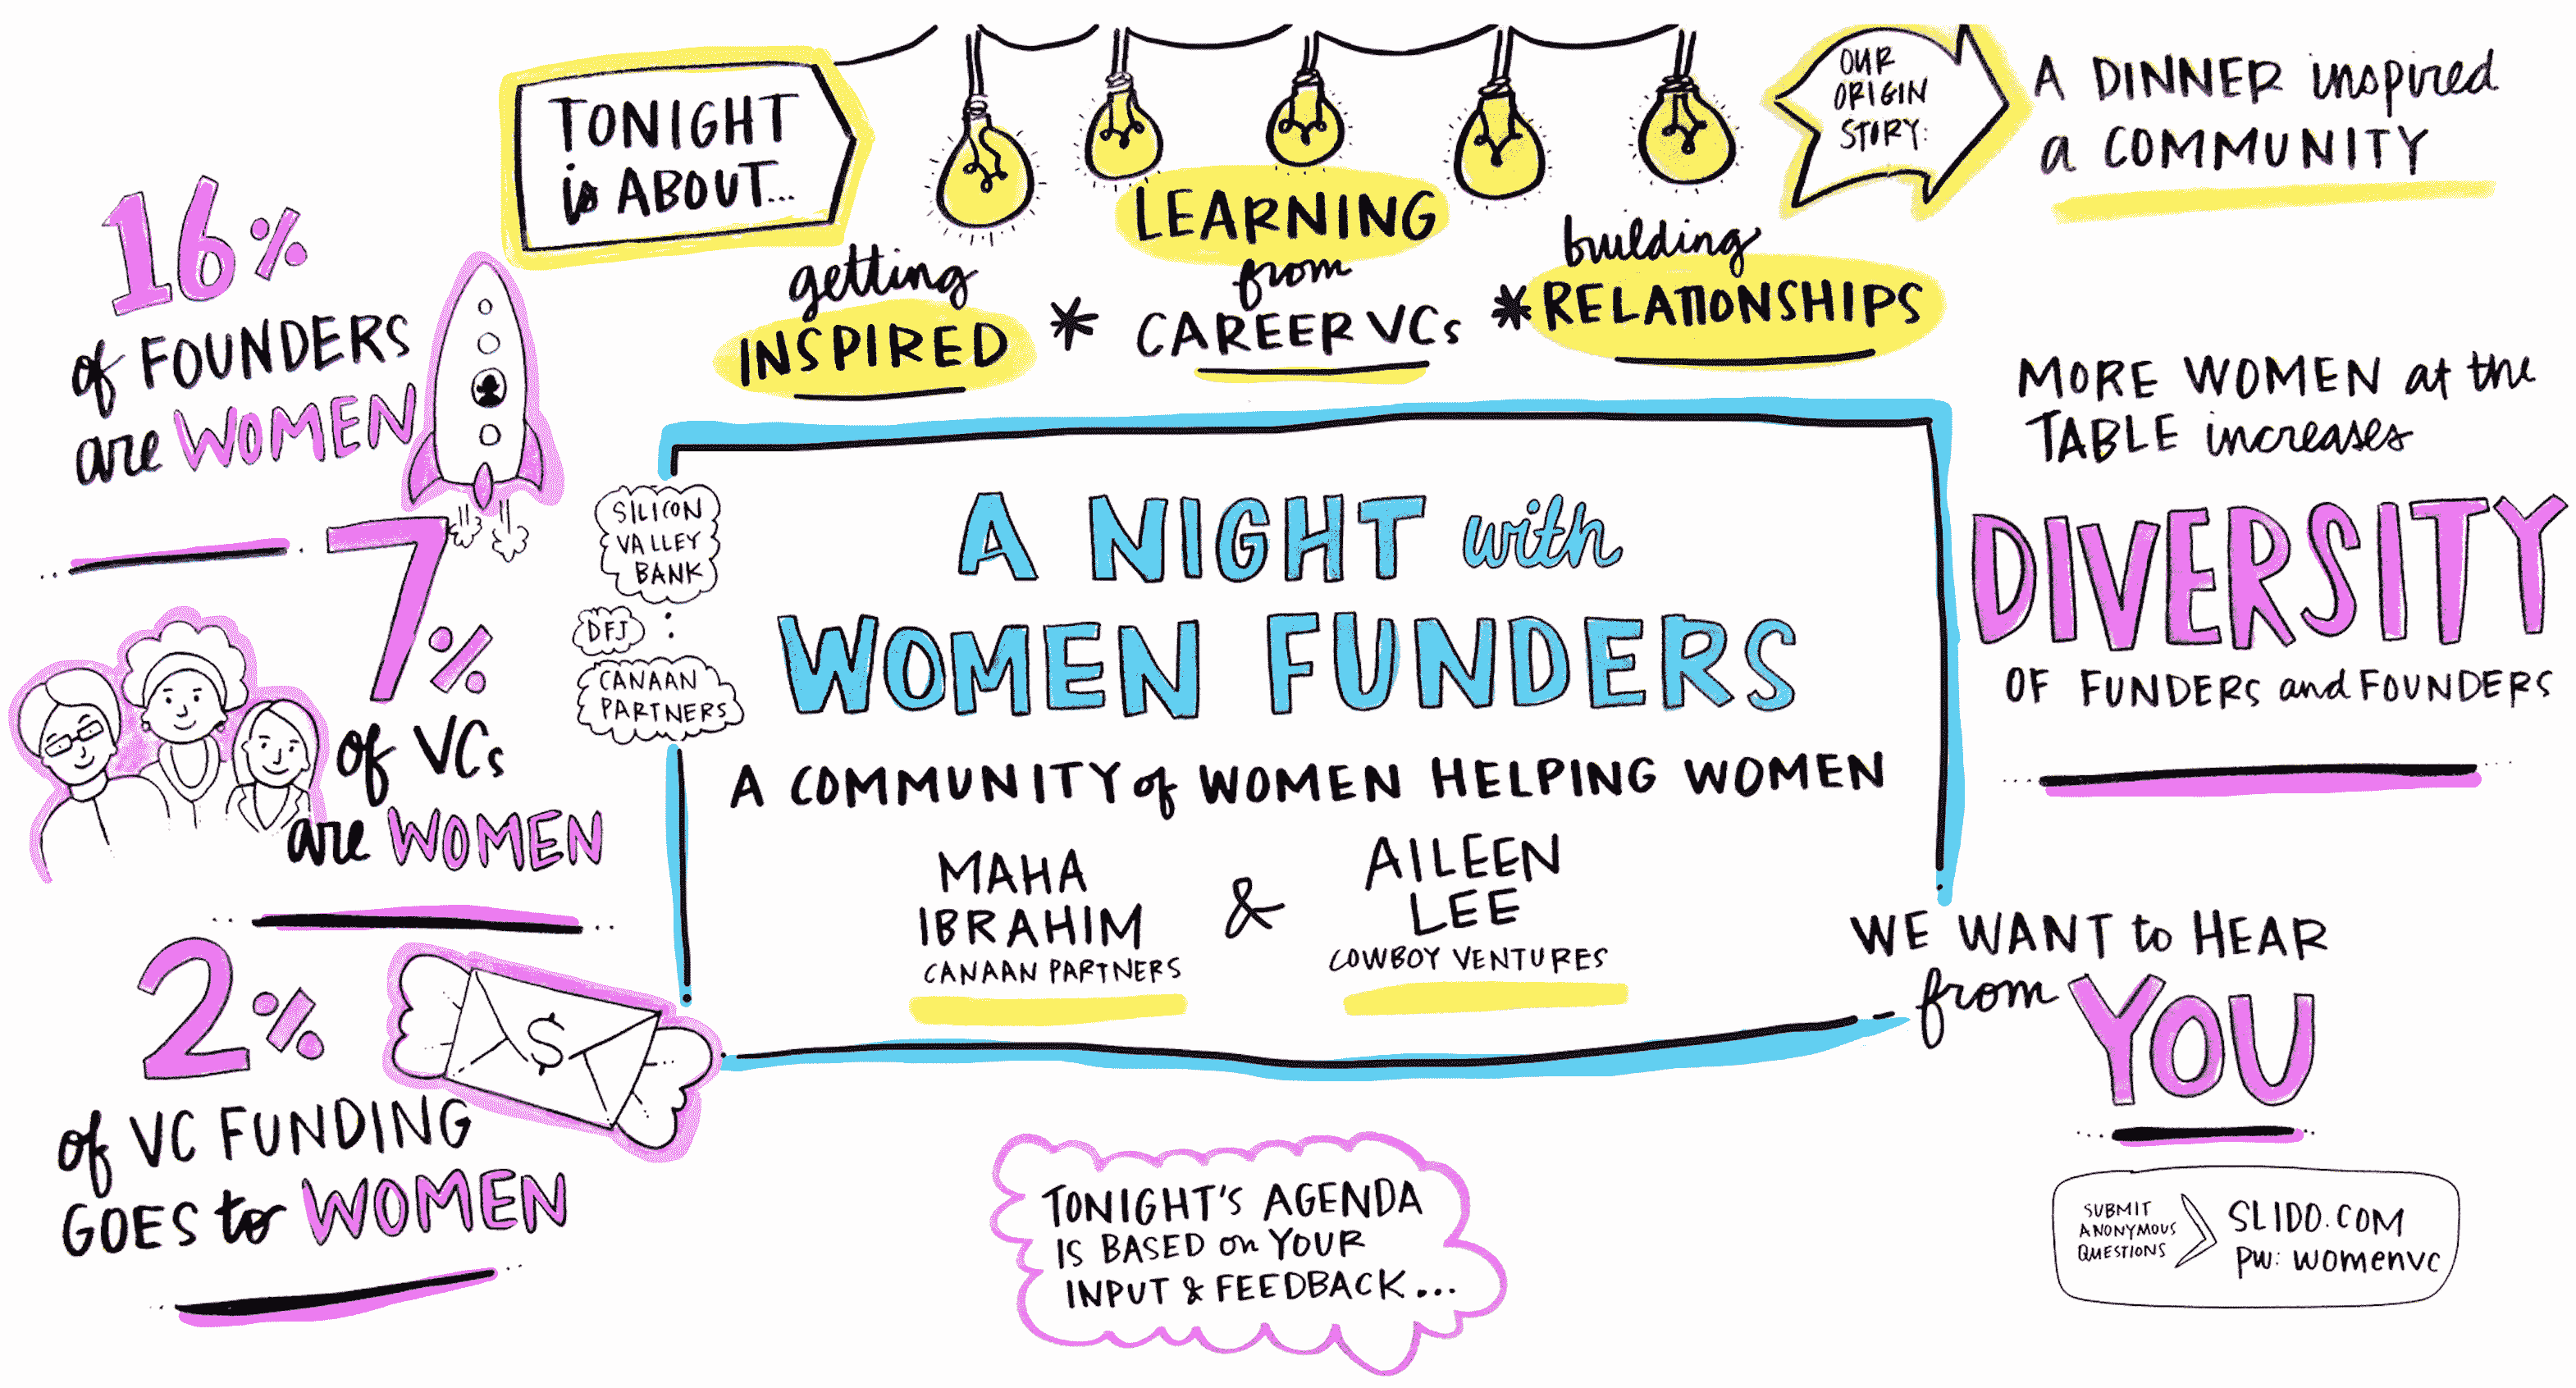 TONIGHT
is ABOUT...
getting
INSPIRED
*
LEARNING
from
CAREER VCs
*
building
RELATIONSHIPS
OUR
ORIGIN
STORY:
A DINNER inspired
a COMMUNITY
16%
of FOUNDERS
are WOMEN
7%
of VCs
are WOMEN
2%
of VC FUNDING
GOES to WOMEN
$
SILICON
VALLEY
BANK
DFJ
CANAAN
PARTNERS
A NIGHT with
WOMEN FUNDERS
A COMMUNITY of WOMEN HELPING WOMEN
MAHA
IBRAHIM
CANAAN PARTNERS
&
AILEEN
LEE
COWBOY VENTURES
MORE WOMEN at the
TABLE increases
DIVERSITY
OF FUNDERS and FOUNDERS
WE WANT to HEAR
from YOU
SUBMIT
ANONYMOUS
QUESTIONS
SLIDO.COM
PW: womenvc
TONIGHT'S AGENDA
IS BASED on YOUR
INPUT & FEEDBACK...